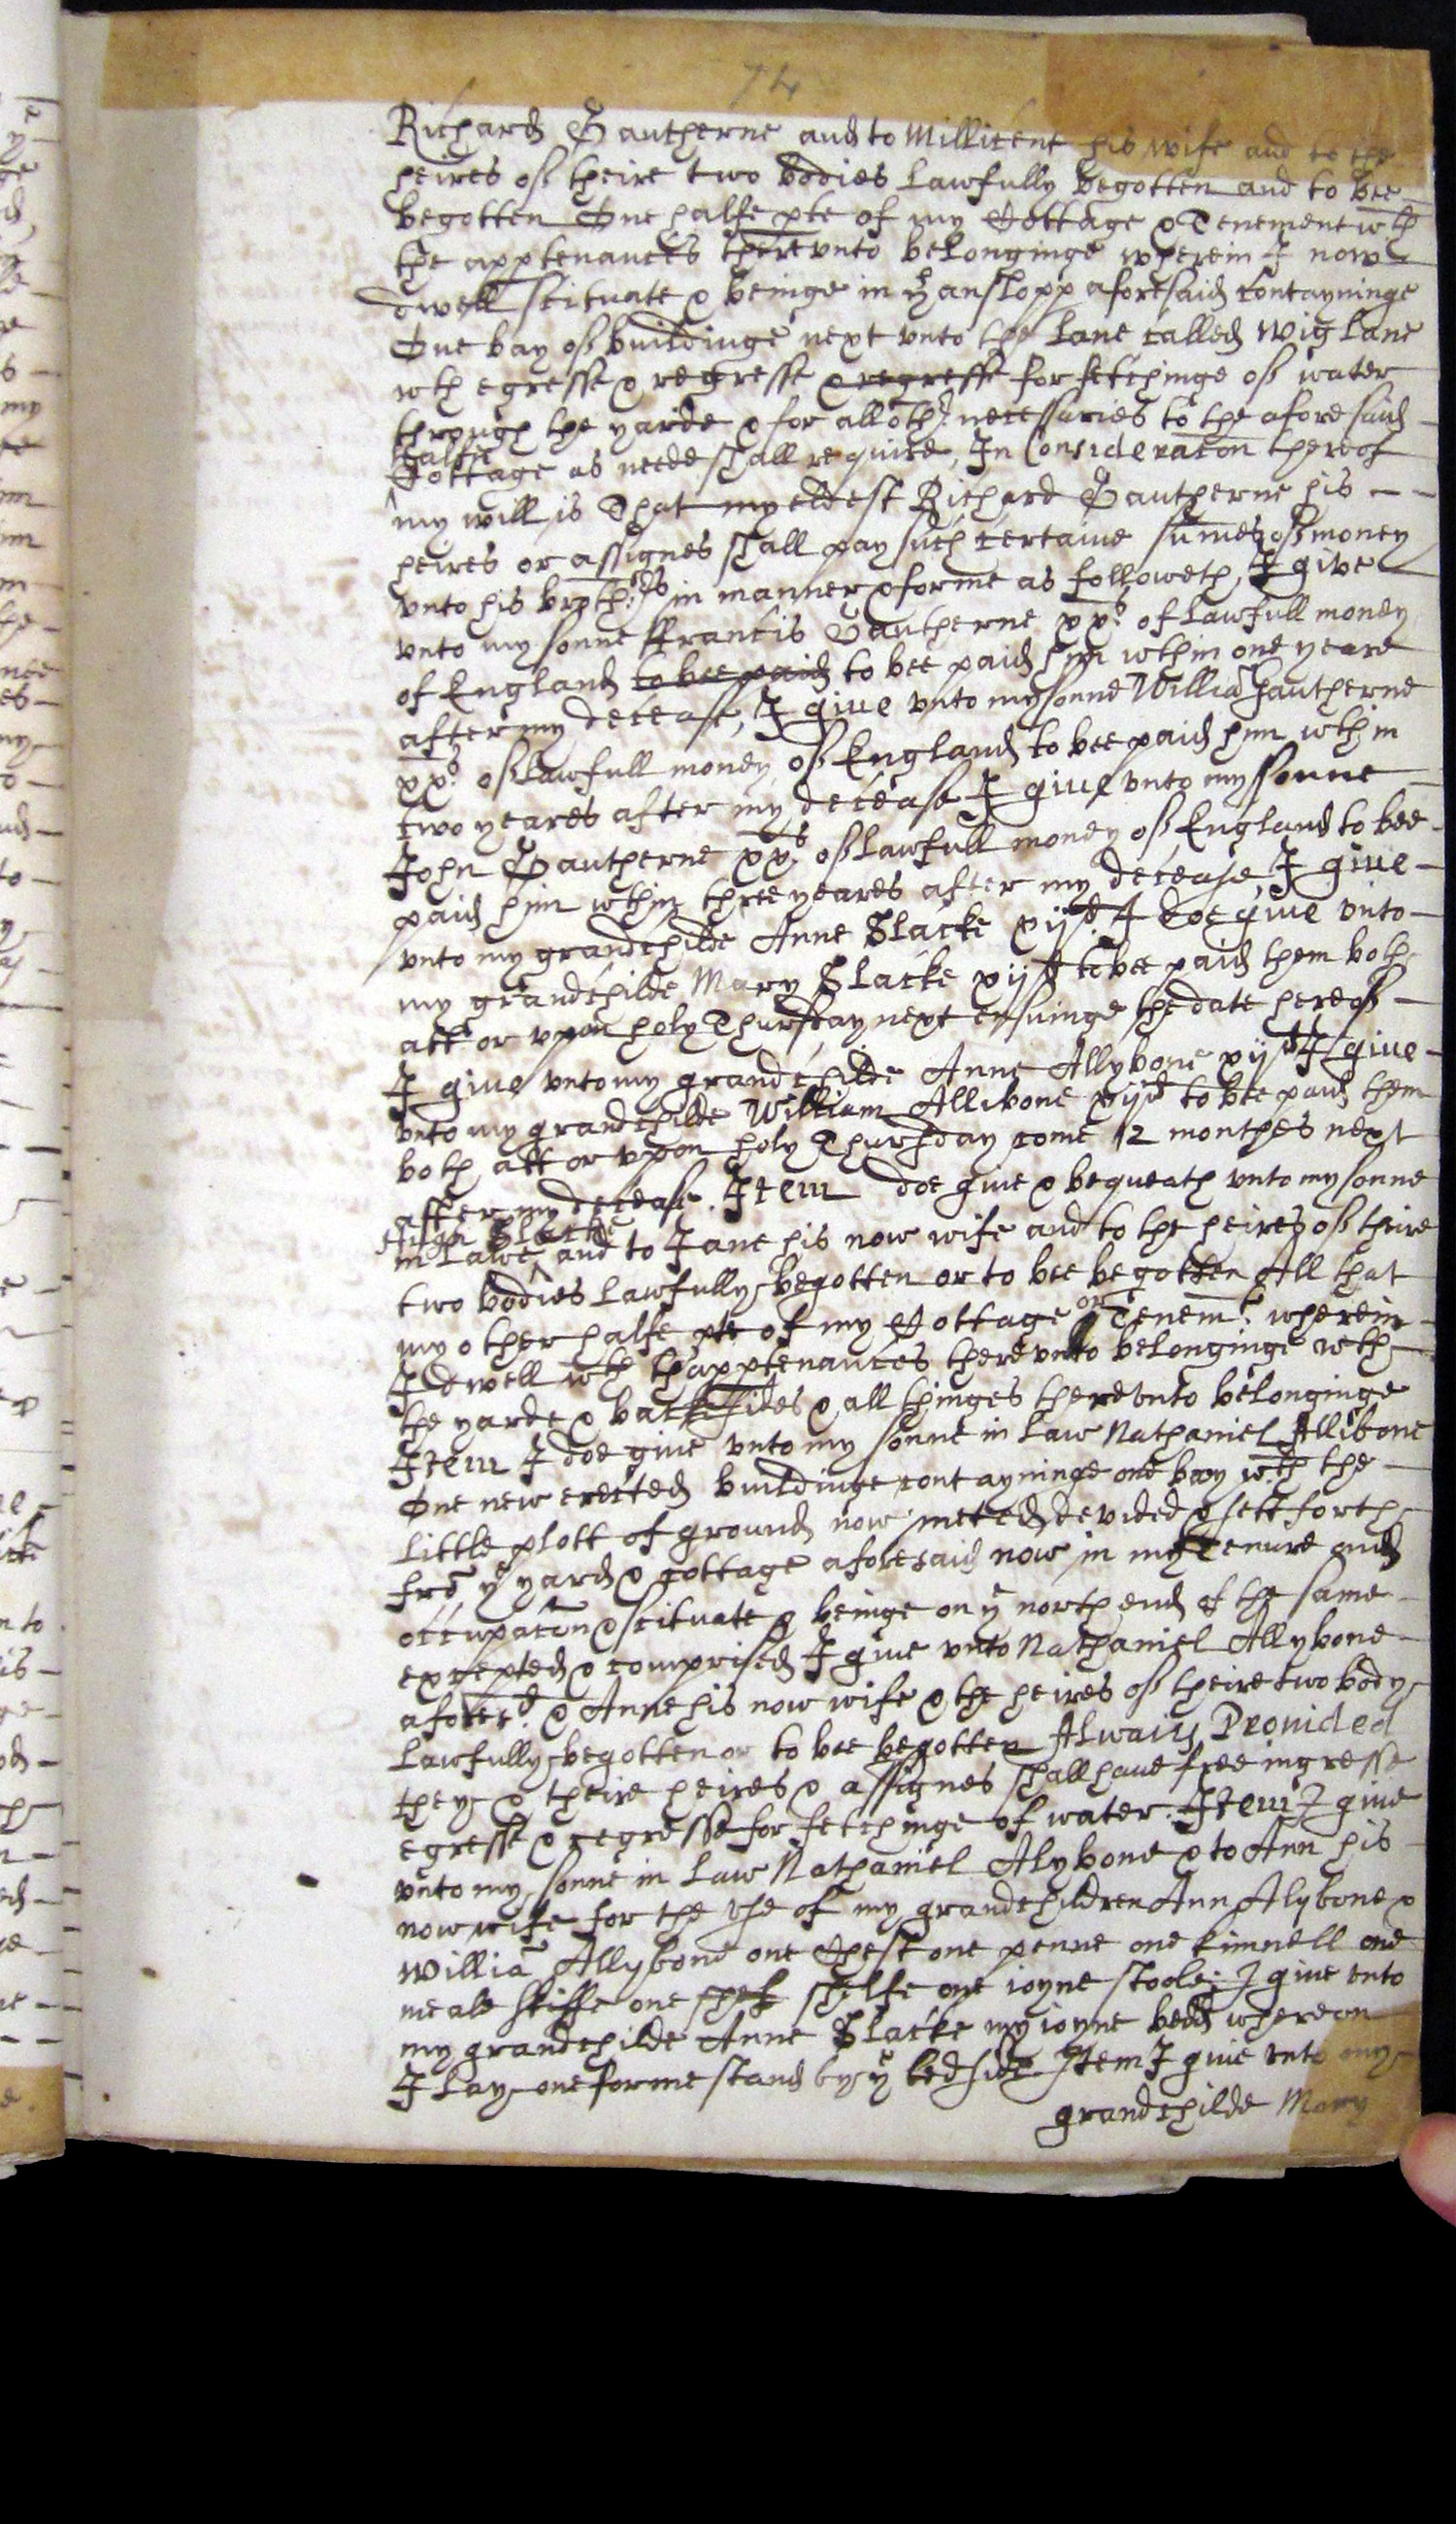 74
Richard Gautherne and to Millicent his wife and to the
heires of theire two bodies Lawfully begotten and to bee
begotten One halfe pte of my Cottage & Tenement wth
the apptenances therevnto belonginge wherein I now
dwell scituate & beinge in Hanslopp aforesaid contayninge
One bay of buildinge next vnto the Lane called Wig Lane
wth egresse & regresse & regresse for fetchinge of water
through the yarde & for all othr necessaries to the aforesaid
halfe
Cottage as neede shall require, In Consideracon thereof
my will is That my eldest Richard Gautherne his
heires or assignes shall pay such certaine sumes of money
vnto his brothrs in manner & forme as followeth, I give
vnto my sonne ffrancis Gautherne xxs of Lawfull money
of England to bee paid to bee paid him wthin one yeare
after my decease, I give vnto my sonne Willia Gautherne
xxs of Lawfull money of England to bee paid him wthin
two yeares after my decease I give vnto my sonne
John Gautherne xxs of Lawfull money of England to bee
paid him wthin three yeares after my decease, I give
vnto my grandchilde Anne Slacke xijd I doe give vnto
my grandchilde Mary Slacke xijd to bee paid them both
att or vpon holy Thursday next ensuinge the date hereof
I give vnto my grandchilde Anne Allybone xijd I give
vnto my grandchilde William Allibone xijd to bee paid them
both att or vpon holy Thursday come 12 monthes next
after my decease. Item doe give & bequeath vnto my sonne
Hugh Slacke
in Lawe and to Jane his now wife and to the heires of theire
two bodies Lawfully begotten or to bee begotten All that
my other halfe pte of my Cottage or Tenemt wherein
I dwell wth thapptenances therevnto belonginge wth
the yarde & backsides & all thinges therevnto belonginge
Item I doe give vnto my sonne in Law Nathaniel Allibone
One new erected buildinge contayninge one bay wth the
Little plott of ground now meted devided & sett forth
fro ye yard & cottage aforesaid now in my Tenure and
occupacon & scituate & beinge on ye north end of the same
excepted & comprised I give vnto Nathaniel Allybone
aforesd & Anne his now wife & the heires of theire two body
Lawfully begotten or to bee begotten Alwaies Provided
they & theire heires & assignes shall have free ingresse
egresse & regresse for fetchinge of water. Item I give
vnto my sonne in Law Nathaniel Alybone & to Ann his
now wife for the vse of my grandchildren Ann Alybone &
Willia Allybone one Chest one penne one kimnell one
meale skiffe one shelfe one ioyne stoole: I give vnto
my grandchilde Anne Slacke my ioyne bedd whereon
I Lay one forme stand by ye bedside Item I give vnto my
grandchilde Mary